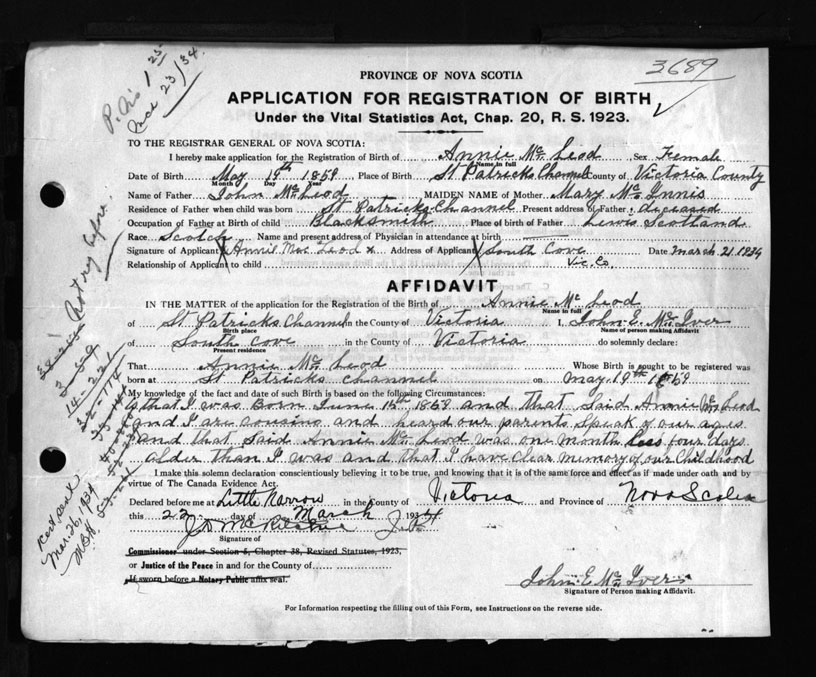 3689
P. his 1 25
Mch 23/34.
PROVINCE OF NOVA SCOTIA
APPLICATION FOR REGISTRATION OF BIRTH
Under the Vital Statistics Act, Chap. 20, R. S. 1923.
TO THE REGISTRAR GENERAL OF NOVA SCOTIA:
I hereby make application for the Registration of Birth of Annie Mc Leod Sex Female
Name in full
Date of Birth May 19th 1859 Place of Birth St Patricks Channel County of Victoria County
Month Day Year
Name of Father John Mc Leod MAIDEN NAME of Mother Mary Mc Innis
Residence of Father when child was born St Patricks Channel Present address of Father deceased
Occupation of Father at Birth of child Blacksmith Place of birth of Father Lewis Scotland
Race Scotch Name and present address of Physician in attendance at birth
Signature of Applicant Annie Mac Leod x Address of Applicant South Cove Date March 21 1934
Relationship of Applicant to child Vic. Co.
AFFIDAVIT
IN THE MATTER of the application for the Registration of the Birth of Annie Mc Leod
Name in full
of St Patricks Channel in the County of Victoria I, John E. Mc Iver
Birth place Name of person making Affidavit
of South Cove in the County of Victoria do solemnly declare:
Present residence
That Annie Mc Leod Whose Birth is sought to be registered was
born at St Patricks Channel on May. 19th 1859
My knowledge of the fact and date of such Birth is based on the following Circumstances:
that I was Born June 15th 1859 and that Said Annie Mc Leod
and I are cousins and heard our parents Speak of our ages
and that Said Annie Mc Leod was one month less four days
older than I was and that I have clear memory of our Childhood
I make this solemn declaration conscientiously believing it to be true, and knowing that it is of the same force and effect as if made under oath and by
virtue of The Canada Evidence Act.
Declared before me at Little Narrow in the County of Victoria and Province of Nova Scotia
this 22 day of March 1934
J. P.
Signature of
Commissioner under Section 6, Chapter 38, Revised Statutes, 1923,
or Justice of the Peace in and for the County of
If sworn before a Notary Public affix seal.
John E. Mc Iver
Signature of Person making Affidavit.
For Information respecting the filling out of this Form, see Instructions on the reverse side.
Not reg before.
3-5-9
14-221
32-174
Mar 26, 1934